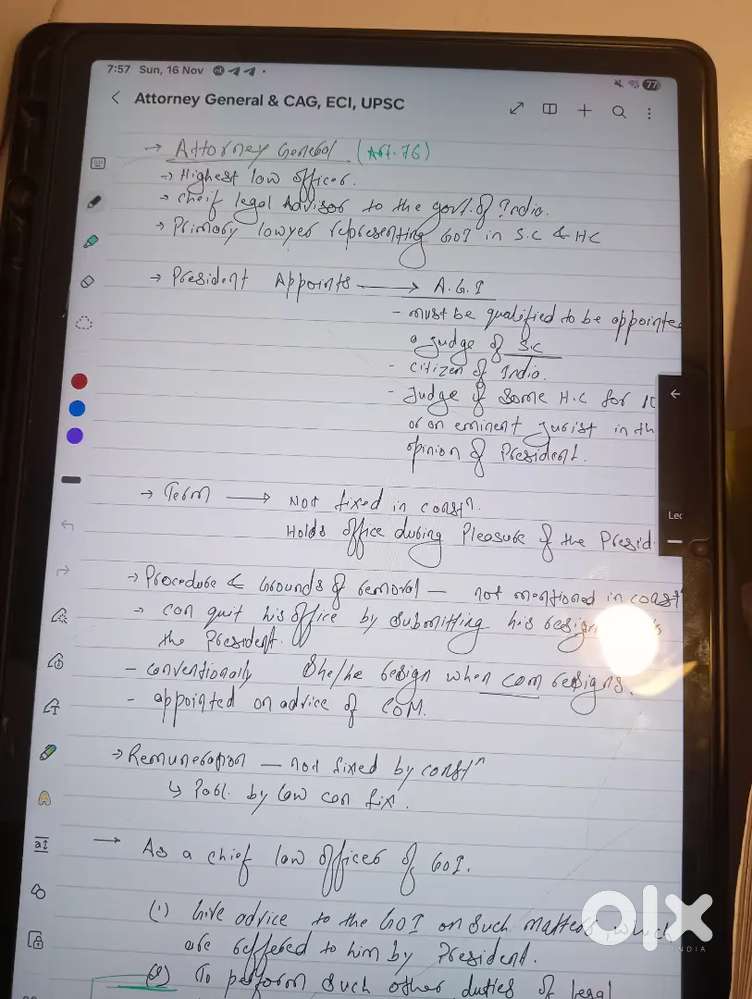 7:57 Sun, 16 Nov
77
Attorney General & CAG, ECI, UPSC
→ Attorney General (Art. 76)
→ Highest law officer.
→ cheif legal Advisor to the govt. of India.
→ Primary lawyer representing GoI in S.C & HC
→ President Appoints → A.G.I
- must be qualified to be appointe
a judge of S.C
- citizen of India.
- Judge of Some H.C for 10
or an eminent jurist in th
opinion of President.
Lec
→ Term → Not fixed in constn.
Holds office during Pleasure of the Presid
→ Procedure & Grounds of removal – not mentioned in constn
→ can quit his office by submitting his resign
the President.
- conventionally She/he resign when COM resigns.
- appointed on advice of COM.
→ Remuneration – not fixed by constn
↳ Parl. by law can fix.
→ As a chief law officer of GoI.
(1) Give advice to the GoI on such matters which
are reffered to him by President.
(2) To perform such other duties of legal
olx
INDIA